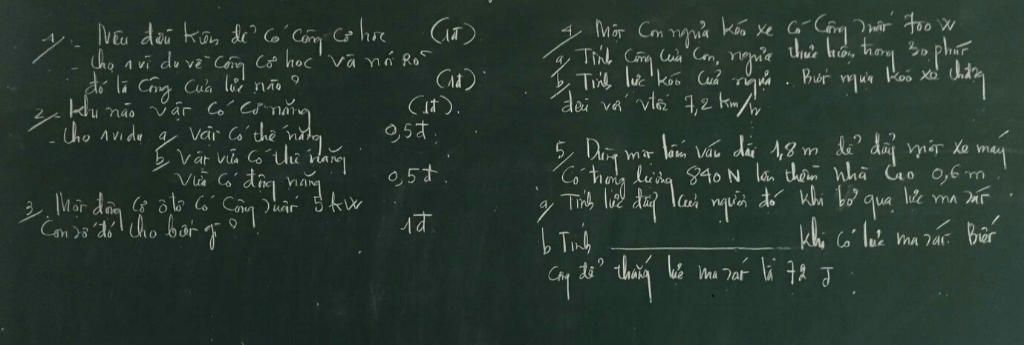 1/ - Nêu điều kiện để có công cơ học (1đ)
- Cho 1 ví dụ về công cơ học và nói rõ
đó là công của lực nào? (1đ)
2/ Khi nào vật có cơ năng (1đ).
- Cho 1 ví dụ a/ vật có thế năng 0,5đ
b/ vật vừa có thế năng
vừa có động năng 0,5đ.
3/ Một động cơ ô tô có công suất 5 kW
Con số đó cho biết gì? 1đ
4/ Một con ngựa kéo xe có công suất 700 W
a/ Tính công của con ngựa thực hiện trong 30 phút
b/ Tính lực kéo của ngựa. Biết ngựa kéo xe chuyển
đều với vtốc 7,2 km/h
5/ Dùng một tấm ván dài 1,8 m để đẩy một xe máy
có trọng lượng 840 N lên thềm nhà cao 0,6 m
a/ Tính lực đẩy của người đó khi bỏ qua lực ma sát
b Tính ____________ khi có lực ma sát. Biết
công để thắng lực ma sát là 72 J